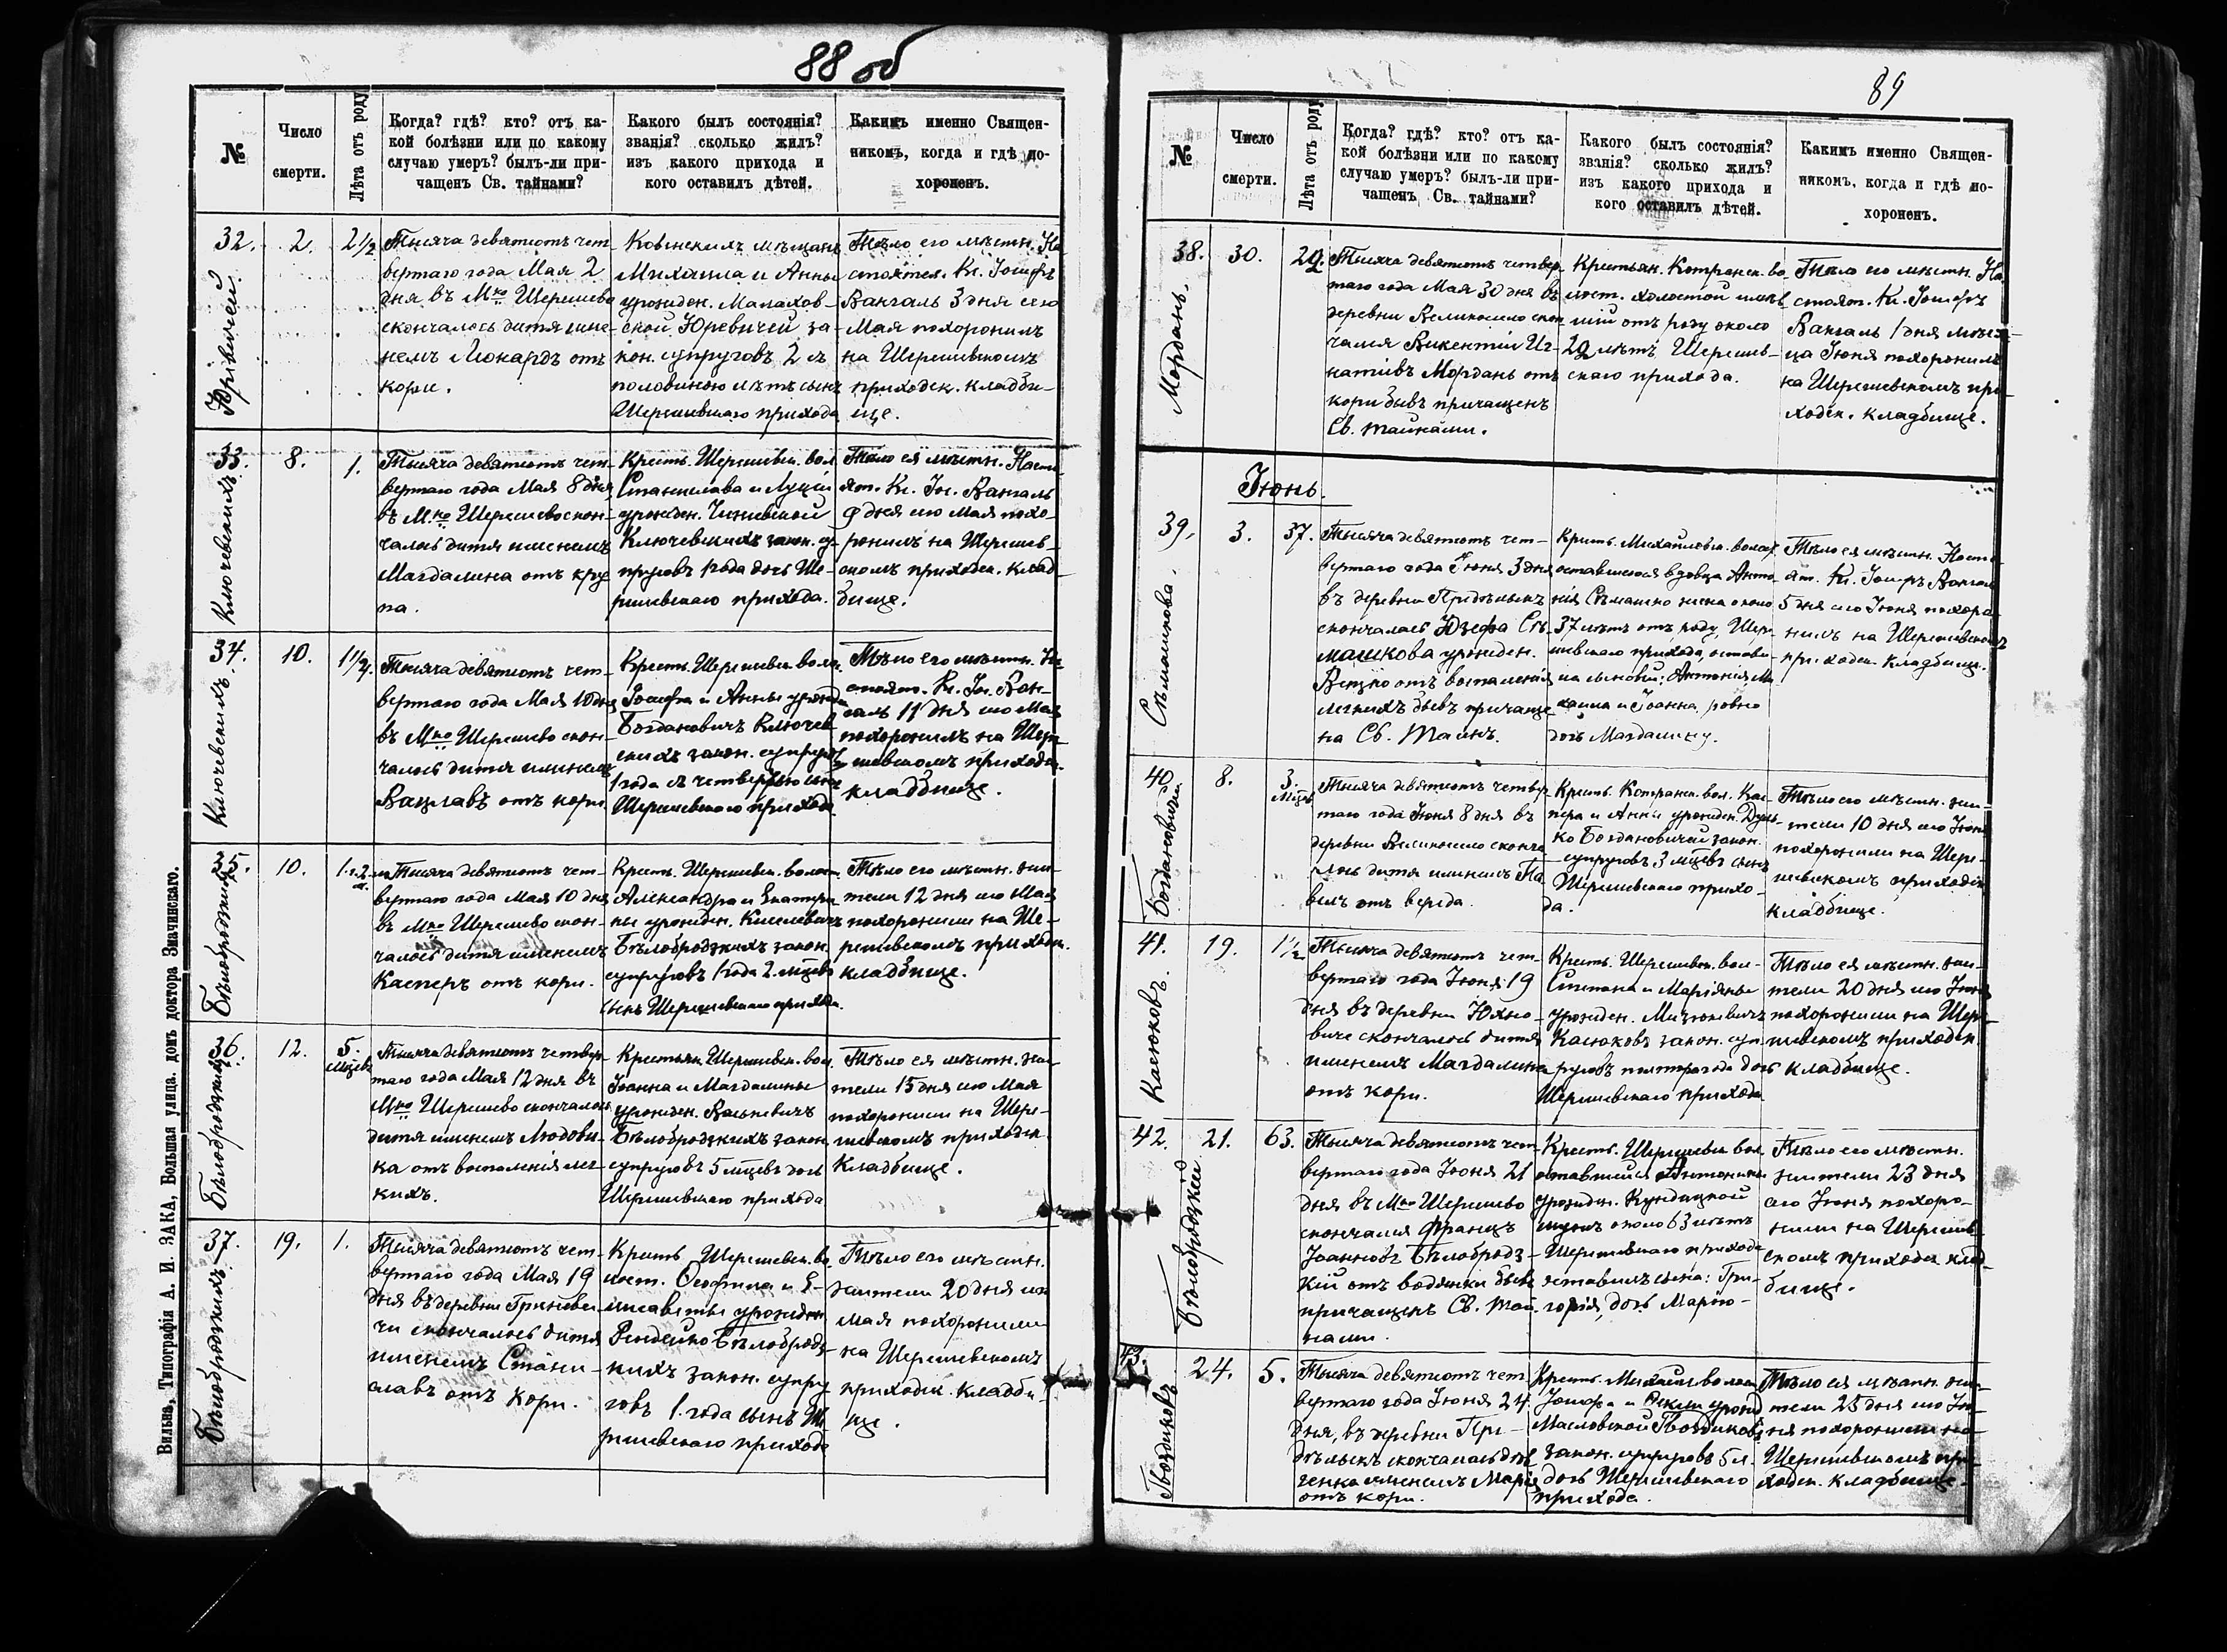 88 об
№
Число
смерти.
Лѣта отъ роду
Когда? гдѣ? кто? отъ ка-
кой болѣзни или по какому
случаю умеръ? былъ-ли при-
чащенъ Св. тайнами?
Какого былъ состоянія?
званія? сколько жилъ?
изъ какого прихода и
кого оставилъ дѣтей.
Какимъ именно Священ-
никомъ, когда и гдѣ по-
хороненъ.
32.
2.
2 1/2
Тысяча девятьсотъ чет
вертаго года Мая 2
дня въ Мко Шерешево
скончалось дитя име-
немъ Леонардъ отъ
кори.
Ковенскихъ мѣщанъ
Михаила и Анны
урожден. Малахов-
ской Юревичей за-
кон. супруговъ 2 съ
половиною лѣтъ сынъ
Шерешевскаго прихода
Тѣло его мѣстн. На
стоятел. Кс. Іосифъ
Вангаль 3 дня сего
Мая похоронилъ
на Шерешевскомъ
приходск. кладби-
ще.
33.
Ключевскихъ
8.
1.
Тысяча девятьсотъ чет-
вертаго года Мая 8 дня
въ М.ко Шерешево скон-
чалось дитя именемъ
Магдалина отъ кру
па.
Крест. Шерешевск. вол.
Станислава и Луціи
урожден.
Ключевскихъ закон. су-
пруговъ 1 года дочь Ше-
решевскаго прихода.
Тѣло ея мѣстн. Насто
ят. Кс. Іос. Вангаль
9 дня сего Мая похо-
ронилъ на Шерешев-
скомъ приходск. клад-
бище.
34.
Ключевскихъ
10.
1 1/4.
Тысяча девятьсотъ чет-
вертаго года Мая 10 дня
въ Мко Шерешево скон-
чалось дитя именемъ
Вацлавъ отъ кори.
Крест. Шерешевск. волос.
Іосифа и Анны урожд
Богдановичъ Ключев
скихъ закон. супругов
1 года съ четвертью сынъ
Шерешевскаго прихода
Тѣло его мѣстн. На
стоят. Кс. Іос. Ван-
галь 11 дня сего Мая
похоронилъ на Шере
шевскомъ приходск.
кладбище.
35.
Бѣлобродзкихъ
10.
1 г. 2 м.
Тысяча девятьсотъ чет-
вертаго года Мая 10 дня
въ Мко Шерешево скон-
чалось дитя именемъ
Касперъ отъ кори.
Крест. Шерешевск. волост.
Александра и Екатери
ны урожден. Киселевичъ
Бѣлобродзкихъ закон.
супруговъ 1 года 2. мцевъ
сынъ Шерешевскаго прихода.
Тѣло его мѣстн. жи-
тели 12 дня сего Мая
похоронили на Ше-
решевскомъ приходск.
кладбище.
36.
Бѣлобродзкихъ
12.
5.
мцевъ
Тысяча девятьсотъ четвер-
таго года Мая 12 дня въ
Мко Шерешево скончалось
дитя именемъ Людови-
ка отъ воспаленія лег-
кихъ.
Крестьян. Шерешевск. вол
Іоанна и Магдалины
урожден. Васькевичъ
Бѣлобродзкихъ закон.
супруговъ 5 мцевъ дочь
Шерешевскаго прихода
Тѣло ея мѣстн. жи-
тели 13 дня сего Мая
похоронили на Шере-
шевскомъ приходск.
кладбище.
37.
Бѣлобродзкихъ
19.
1.
Тысяча девятьсотъ чет-
вертаго года Мая 19
дня въ деревни Гриневи-
чи скончалось дитя
именемъ Стани-
славъ отъ кори.
Крест. Шерешевск. во
лост. Ѳеофила и Е-
лисаветы урожден
Рендейко Бѣлобродз-
кихъ закон. супру
говъ 1. года сынъ Ше
решевскаго прихода
Тѣло его мѣстн.
жители 20 дня сего
мая похоронили
на Шерешевскомъ
приходск. кладби-
ще.
Вильна, Типографія А. И. ЗАКА, Большая улица. домъ доктора Значинскаго.
89
№
Число
смерти.
Лѣта отъ роду
Когда? гдѣ? кто? отъ ка-
кой болѣзни или по какому
случаю умеръ? былъ-ли при-
чащенъ Св. тайнами?
Какого былъ состоянія?
званія? сколько жилъ?
изъ какого прихода и
кого оставилъ дѣтей.
Какимъ именно Священ-
никомъ, когда и гдѣ по-
хороненъ.
38.
Морданъ.
30.
29.
Тысяча девятьсотъ четвер-
таго года Мая 30 дня въ
деревни Великосело скон
чался Викентій Иг-
натіевъ Морданъ отъ
кори бывъ причащенъ
Св. тайнами.
Крестьян. Котранск. во
лост. холостой имѣв
шій отъ роду около
29 лѣтъ Шерешев-
скаго прихода.
Тѣло его мѣстн. На
стоят. Кс. Іосифъ
Вангаль 1 дня мѣся-
ца Іюня похоронилъ
на Шерешевскомъ при
ходск. кладбище.
Іюнь.
39.
Съмашкова.
3.
37.
Тысяча девятьсотъ чет-
вертаго года Іюня 3 дня
въ деревни Придѣлькъ
скончалась Юзефа Съ-
машкова урожден.
Вецко отъ воспаленія
легкихъ бывъ причаще
на Св. Таинъ.
Крест. Михайловск. волост
оставшегося вдовца Анто-
нія Съмашко жена около
37 лѣтъ отъ роду, Шере
шевскаго прихода, остави-
ла сыновей: Антонія, Ми
хаила и Іоанна, ровно
дочь Магдалину.
Тѣло ея мѣстн. Насто
ят. Кс. Іосифъ Вангаль
5 дня сего Іюня похоро
нилъ на Шерешевскомъ
приходск. кладбище.
40.
Богдановичей
8.
3.
мцев
Тысяча девятьсотъ четвер
таго года Іюня 8 дня въ
деревни Великосело сконча
лось дитя именемъ Па
велъ отъ вереда.
Крест. Котранск. вол. Кас-
пера и Анны урожден. Дуль-
ко Богдановичей закон.
супруговъ 3 мцевъ сынъ
Шерешевскаго прихо-
да.
Тѣло его мѣстн. жи-
тели 10 дня сего Іюня
похоронили на Шере-
шевскомъ приходск
кладбище.
41.
Касюковъ.
19.
1 1/2
Тысяча девятьсотъ чет-
вертаго года Іюня 19
дня въ деревни Юхно-
виче скончалось дитя
именемъ Магдалина
отъ кори.
Крест. Шерешевск. вол-
Степана и Маріянны
урожден.
Касюковъ закон. суп
руговъ полтора года дочь
Шерешевскаго прихода
Тѣло ея мѣстн. жи-
тели 20 дня сего Іюня
похоронили на Шере-
шевскомъ приходск.
кладбище.
42.
Бѣлобродзкій
21.
63.
Тысяча девятьсотъ чет
вертаго года Іюня 21
дня въ Мко Шерешево
скончался Францъ
Іоанновъ Бѣлобродз-
кій отъ водянки бывъ
причащенъ Св. тай-
нами.
Крест. Шерешевск. вол
оставшейся Антонины
урожден. Кундицкой
мужъ около 63 лѣтъ
Шерешевскаго прихода
оставилъ сына: Гри-
горія, дочь Марію-
Тѣло его мѣстн.
жители 23 дня
сего Іюня похоро-
нили на Шерешев
скомъ приходск. клад-
бище.
43.
Гвоздиковъ
24.
5.
Тысяча девятьсотъ чет-
вертаго года Іюня 24
дня, въ деревни При-
дѣлькъ скончалась дѣв
ченка именемъ Марія
отъ кори.
Крест. Михайл. волост
Іосифа и Ѳеклы урожд
Масловской Гвоздиковъ
закон. супруговъ 5 л.
дочь Шерешевскаго
прихода.
Тѣло ея мѣстн. жи-
тели 25 дня сего Ію-
ня похоронили на
Шерешевскомъ при-
ходск. кладбище